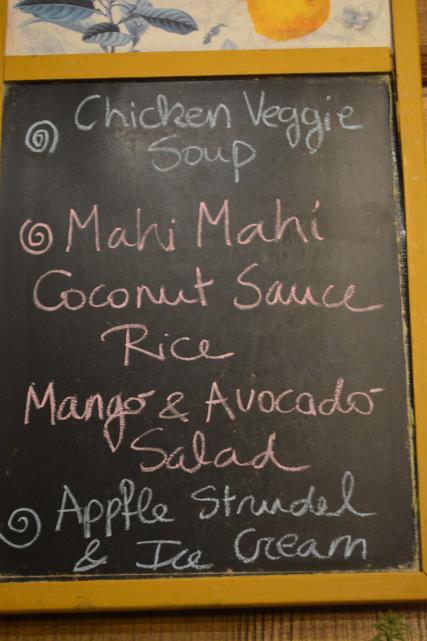 Chicken Veggie
Soup
Mahi Mahi
Coconut Sauce
Rice
Mango & Avocado
Salad
Apple Strudel
& Ice Cream